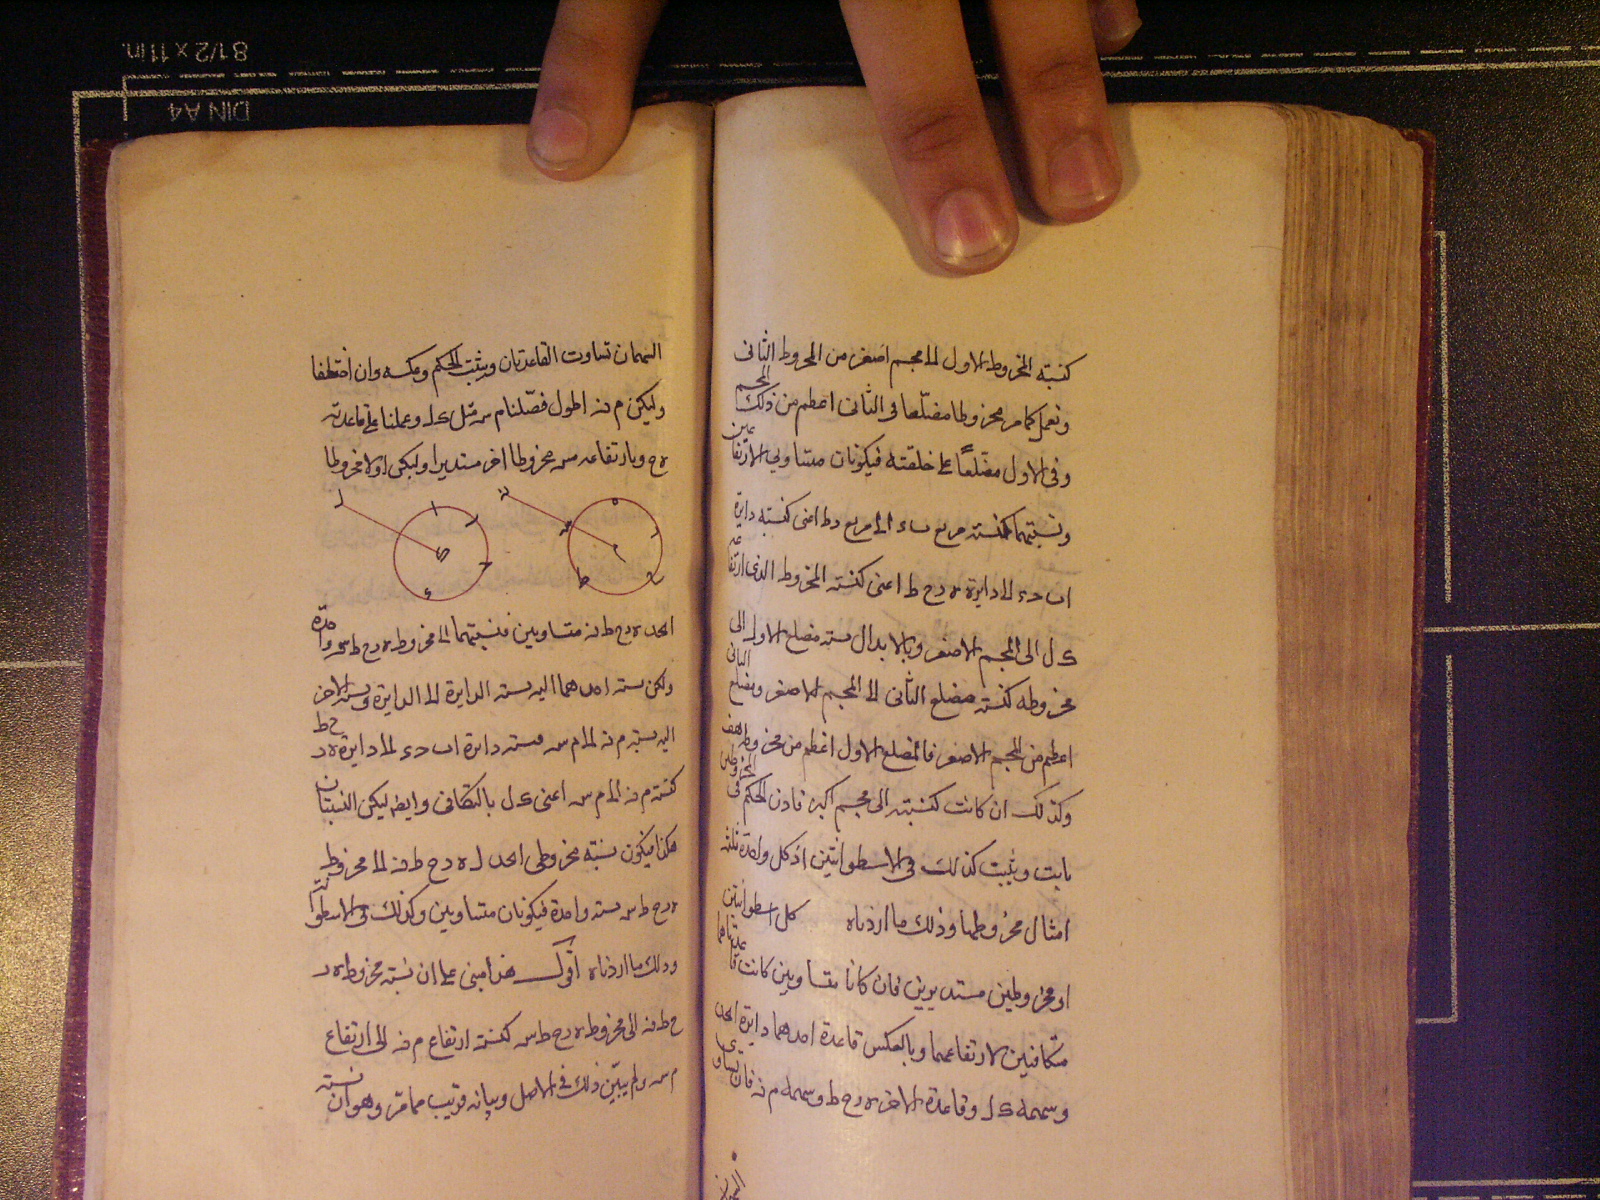 كنسبة المخروط الاول الى مجسم اصغر من المخروط الثانى
ونعمل كما مر مخروطا مضلعا فى الثانى اعظم من ذلك المجسم
وفى الاول مضلعًا على خلقته فيكونان متساويي الارتفاعين
ونسبتهما كنسبة مربع ب د الى مربع ر ط اعنى كنسبة دايرة
ا ب ح د الى دايرة ه ر ح ط اعنى كنسبة المخروط الذى ارتفاعه
ك ل الى المجسم الاصغر وبالابدال نسبة مضلع الاول الى
مخروطه كنسبة مضلع الثانى الى المجسم الاصغر ومضلع الثانى
اعظم من المجسم الاصغر فالمضلع الاول اعظم من مخروطه هف
وكذلك ان كانت كنسبته الى مجسم اكبر فاذن الحكم فى المخروطين
ثابت ويثبت كذلك فى الاسطوانتين اذ كل واحدة ثلثة
امثال مخروطها وذلك ما اردناه كل اسطوانتين
او مخروطين مستديرين فان كانا متساويين كانت قاعدتاهما
متكافئتين لارتفاعيهما وبالعكس قاعدة احدهما دايرة ا ب ح د
وسهمه ك ل وقاعدة الاخر ه ر ح ط وسهمه م ن فان تساوى
السهمان تساوت القاعدتان ويثبت الحكم وعكسه وان اختلفا
وليكن م ن اطول فصلنا م س مثل ك ل وعملنا على قاعدة
ه ح وبارتفاع م س مخروطا اخر مستديرا وليكن اولا مخروطا
ا ب ح د ل ه ر ح ط ن متساويين فنسبتهما الى مخروط ه ر ح ط س واحدة
ولكن نسبة احدهما اليه نسبة الدايرة الى الدايرة ونسبة الاخر
اليه نسبة م ن الى م س فنسبة دايرة ا ب ح د الى دايرة ه ر ح ط
كنسبة م ن الى م س اعنى ك ل بالتكافى وايضا ليكن النسبتان
هكذا فيكون نسبة مخروطى ا ب ح د ل ه ر ح ط ن الى مخروط
ه ر ح ط س نسبة واحدة فيكونان متساويين وكذلك فى الاسطوانتين
وذلك ما اردناه اقول هذا مبنى على ان نسبة مخروط ه ر
ح ط ن الى مخروط ه ر ح ط س كنسبة ارتفاع م ن الى ارتفاع
م س ولم يبيّن ذلك فى الاصل وبيانه قريب مما مرّ وهو ان نسبة
8 1/2 x 11 in.
DIN A4